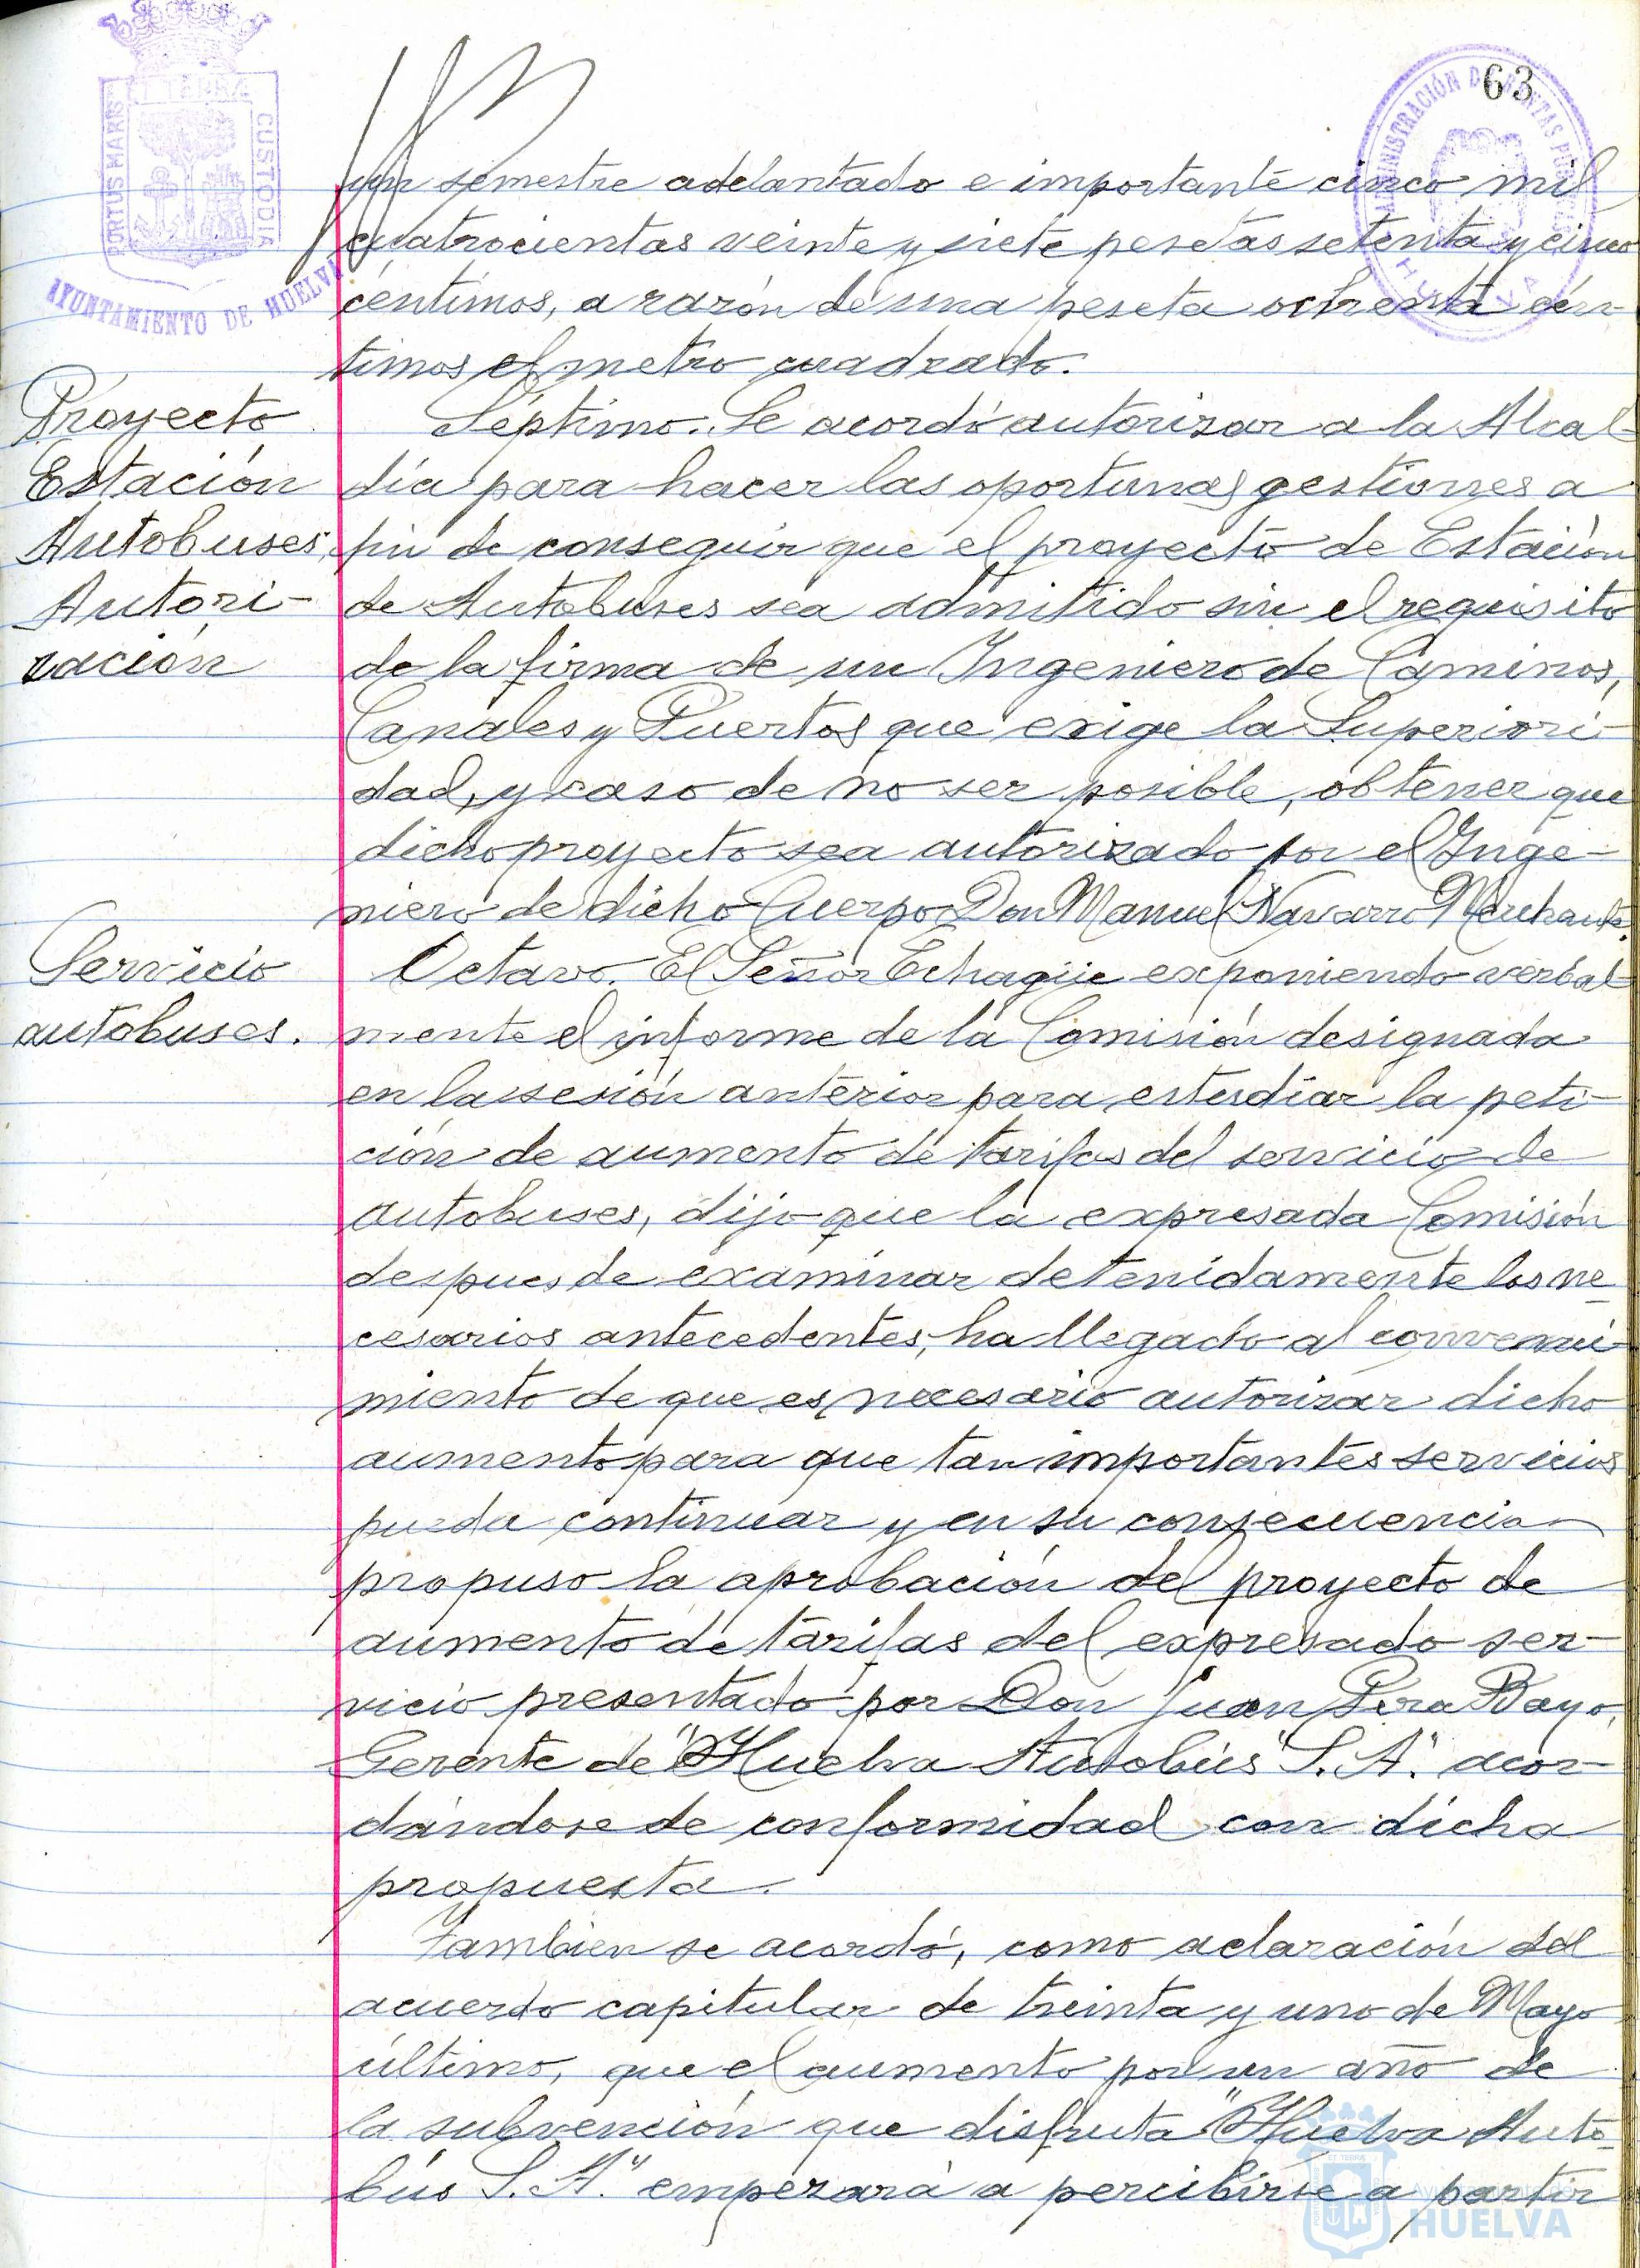 63
PORTUS MARIS ET TERRÆ CUSTODIA
AYUNTAMIENTO DE HUELVA
ADMINISTRACIÓN DE RENTAS PUBLICAS
HUELVA
un semestre adelantado e importante cinco mil
cuatrocientas veinte y siete pesetas setenta y cinco
céntimos, a razón de una peseta ochenta cén-
timos el metro cuadrado.
Proyecto
Estación
Autobuses.
Autori-
zación
Séptimo. Se acordó autorizar a la Alcal-
día para hacer las oportunas gestiones a
fin de conseguir que el proyecto de Estación
de Autobuses sea admitido sin el requisito
de la firma de un Ingeniero de Caminos,
Canales y Puertos que exige la Superiori-
dad, y caso de no ser posible, obtener que
dicho proyecto sea autorizado por el Inge-
niero de dicho Cuerpo Don Manuel Navarro Merchante.
Servicio
autobuses.
Octavo. El Señor Echagüe exponiendo verbal-
mente el informe de la Comisión designada
en la sesión anterior para estudiar la peti-
ción de aumento de tarifas del servicio de
autobuses, dijo que la expresada Comisión
despues de examinar detenidamente los ne-
cesarios antecedentes, ha llegado al convenci-
miento de que es necesario autorizar dicho
aumento para que tan importantes servicios
pueda continuar y en su consecuencia
propuso la aprobación del proyecto de
aumento de tarifas del expresado ser-
vicio presentado por Don Juan Pera Bayo,
Gerente de "Huelva Autobús S.A." acor-
dándose de conformidad con dicha
propuesta.
Tambien se acordó, como aclaración del
acuerdo capitular de treinta y uno de Mayo
último, que el aumento por un año de
la subvención que disfruta "Huelva Auto-
bús S.A." empezará a percibirse a partir
HUELVA